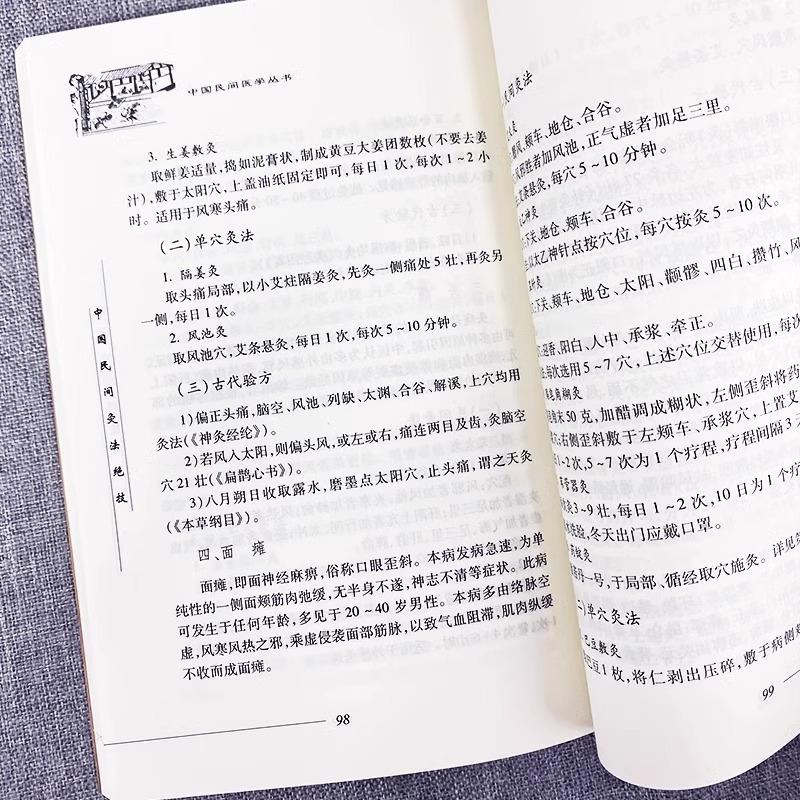 中国民间医学丛书
3. 生姜敷灸
取鲜姜适量,捣如泥膏状,制成黄豆大姜团数枚(不要去姜
汁),敷于太阳穴,上盖油纸固定即可,每日1次,每次1~2小
时。适用于风寒头痛。
(二)单穴灸法
1. 隔姜灸
取头痛局部,以小艾炷隔姜灸,先灸一侧痛处5壮,再灸另
一侧,每日1次。
2. 风池灸
取风池穴,艾条悬灸,每日1次,每次5~10分钟。
(三)古代验方
1)偏正头痛,脑空、风池、列缺、太渊、合谷、解溪,上穴均用
灸法(《神灸经纶》)。
2)若风入太阳,则偏头风,或左或右,痛连两目及齿,灸脑空
穴21壮(《扁鹊心书》)。
3)八月朔日收取露水,磨墨点太阳穴,止头痛,谓之天灸
(《本草纲目》)。
四、面 瘫
面瘫,即面神经麻痹,俗称口眼歪斜。本病发病急速,为单
纯性的一侧面颊筋肉弛缓,无半身不遂,神志不清等症状。此病
可发生于任何年龄,多见于20~40岁男性。本病多由络脉空
虚,风寒风热之邪,乘虚侵袭面部筋脉,以致气血阻滞,肌肉纵缓
不收而成面瘫。
中国民间灸法绝技
98
民间灸法
灸
颊车、地仓、合谷。
胜者加风池,正气虚者加足三里。
艾条悬灸,每穴5~10分钟。
神灸
下关、地仓、颊车、合谷。
以太乙神针点按穴位,每穴按灸5~10次。
灸
下关、颊车、地仓、太阳、颧髎、四白、攒竹、风
迎香、阳白、人中、承浆、牵正。
每次选用5~7穴,上述穴位交替使用,每次
糊灸
末50克,加醋调成糊状,左侧歪斜将药
右侧歪斜敷于左颊车、承浆穴,上置艾
1~2次,5~7次为1个疗程,疗程间隔3天
器灸
灸3~9壮,每日1~2次,10日为1个疗
冬天出门应戴口罩。
灸
丹一号,于局部、循经取穴施灸。详见第
二)单穴灸法
巴豆敷灸
巴豆1枚,将仁剥出压碎,敷于病侧
99